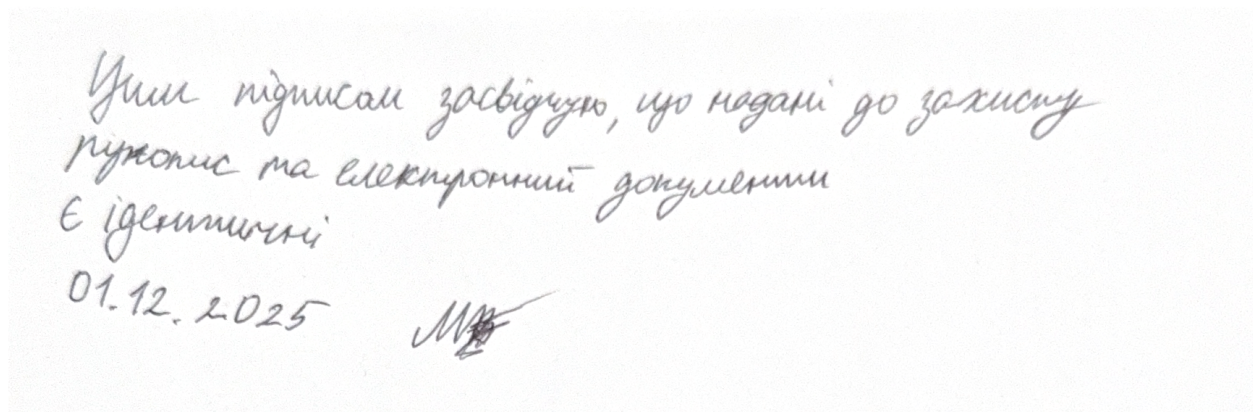 Цим підписом засвідчую, що надані до захисту
рукопис та електронний документи
Є ідентичні
01.12.2025